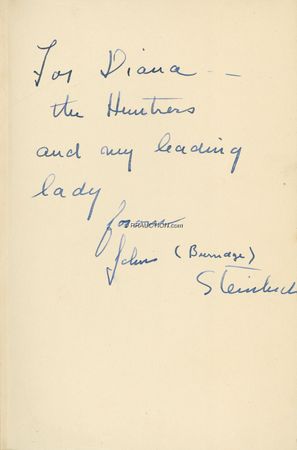 For Diana —
the Huntress
and my leading
lady
from
RRAUCTION.com
John (Burridge)
Steinbeck